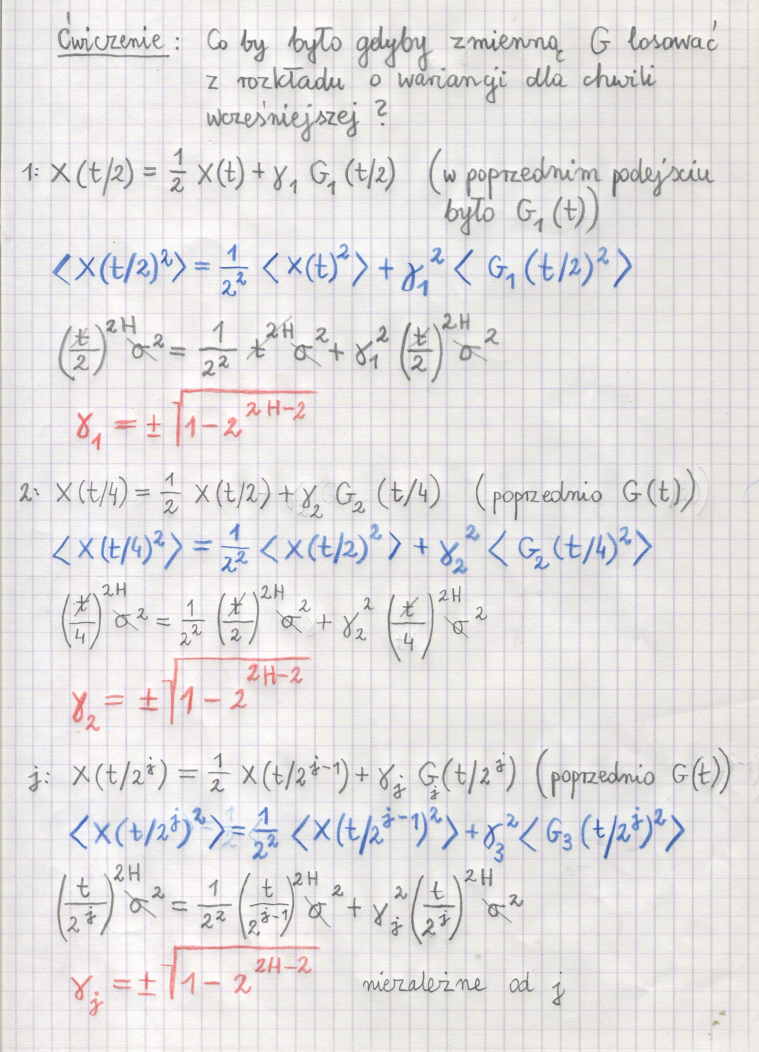 Ćwiczenie: Co by było gdyby zmienną G losować
z rozkładu o wariancji dla chwili
wcześniejszej?
1: X(t/2) = 1/2 X(t) + γ₁ G₁(t/2) (w poprzednim podejściu
było G₁(t))
<X(t/2)²> = 1/2² <X(t)²> + γ₁² <G₁(t/2)²>
(t/2)^2H σ² = 1/2² t^2H σ² + γ₁² (t/2)^2H σ²
γ₁ = ± √(1 - 2^(2H-2))
2: X(t/4) = 1/2 X(t/2) + γ₂ G₂(t/4) (poprzednio G(t))
<X(t/4)²> = 1/2² <X(t/2)²> + γ₂² <G₂(t/4)²>
(t/4)^2H σ² = 1/2² (t/2)^2H σ² + γ₂² (t/4)^2H σ²
γ₂ = ± √(1 - 2^(2H-2))
j: X(t/2^j) = 1/2 X(t/2^(j-1)) + γ_j G_j(t/2^j) (poprzednio G(t))
<X(t/2^j)²> = 1/2² <X(t/2^(j-1))²> + γ₃² <G₃(t/2^j)²>
(t/2^j)^2H σ² = 1/2² (t/2^(j-1))^2H σ² + γ_j² (t/2^j)^2H σ²
γ_j = ± √(1 - 2^(2H-2)) niezależne od j